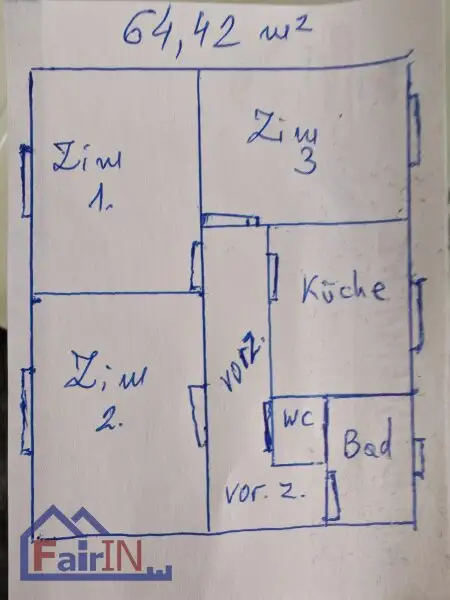 64,42 m²
Zim
3
Zim
1.
Küche
vorz.
Zim
2.
WC
Bad
vor. z.
FairIN